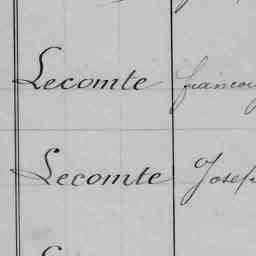 Lecomte françois
Lecomte Joseph